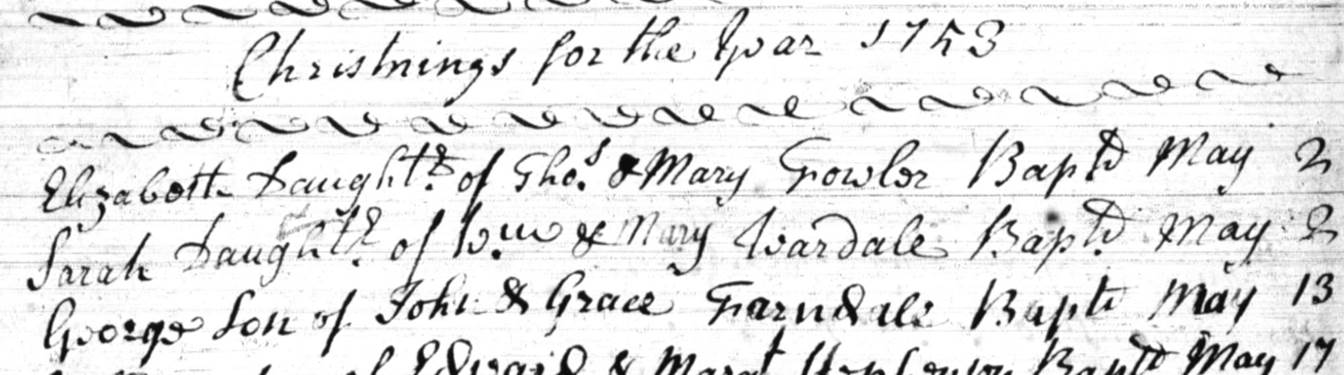 Christnings for the Year 1753
Elizabeth Daught.r of Tho.s & Mary Fowler Bapt'd May 2
Sarah Daught.r of W.m & Mary Wardale Bapt'd May 2
George Son of John & Grace Farndale Bapt'd May 13
of Edward & Marg.t Stephenson Bapt'd May 17